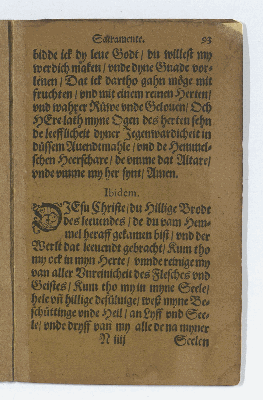 Sacramente. 93
bidde ick dy leue Godt / du willest my
werdich maken / vnde dyne Gnade vor-
lenen / Dat ick dartho gahn möge mit
fruchten / vnd mit einem reinen Herten /
vnd wahrer Rüwe vnde Gelouen / Och
HEre lath myne Ogen des herten sehn
de leefflicheit dyner Jegenwardicheit in
düssem Auendtmahle / vnd de Hemmel-
schen Heerschare / de vmme dat Altare /
vnde vmme my her synt / Amen.
Ibidem.
O JEsu Christe / du Hillige Brodt
des leuendes / de du vam Hem-
mel heraff gekamen bist / vnd der
Werlt dat leuendt gebracht / Kum tho
my ock in myn Herte / vnnde reinige my
van aller Vnreinicheit des Flesches vnd
Geistes / Kum tho my in myne Seele /
hele vñ hillige desüluige / weß myne Be-
schüttinge vnde Heil / an Lyff vnd See-
le / vnde dryff van my alle de na myner
N iiij Seelen